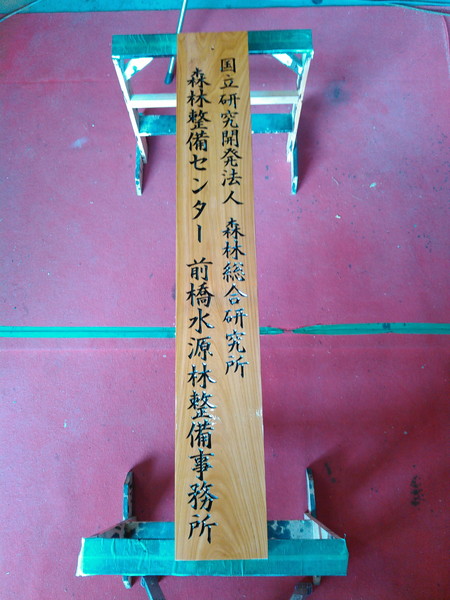 国立研究開発法人 森林総合研究所
森林整備センター 前橋水源林整備事務所